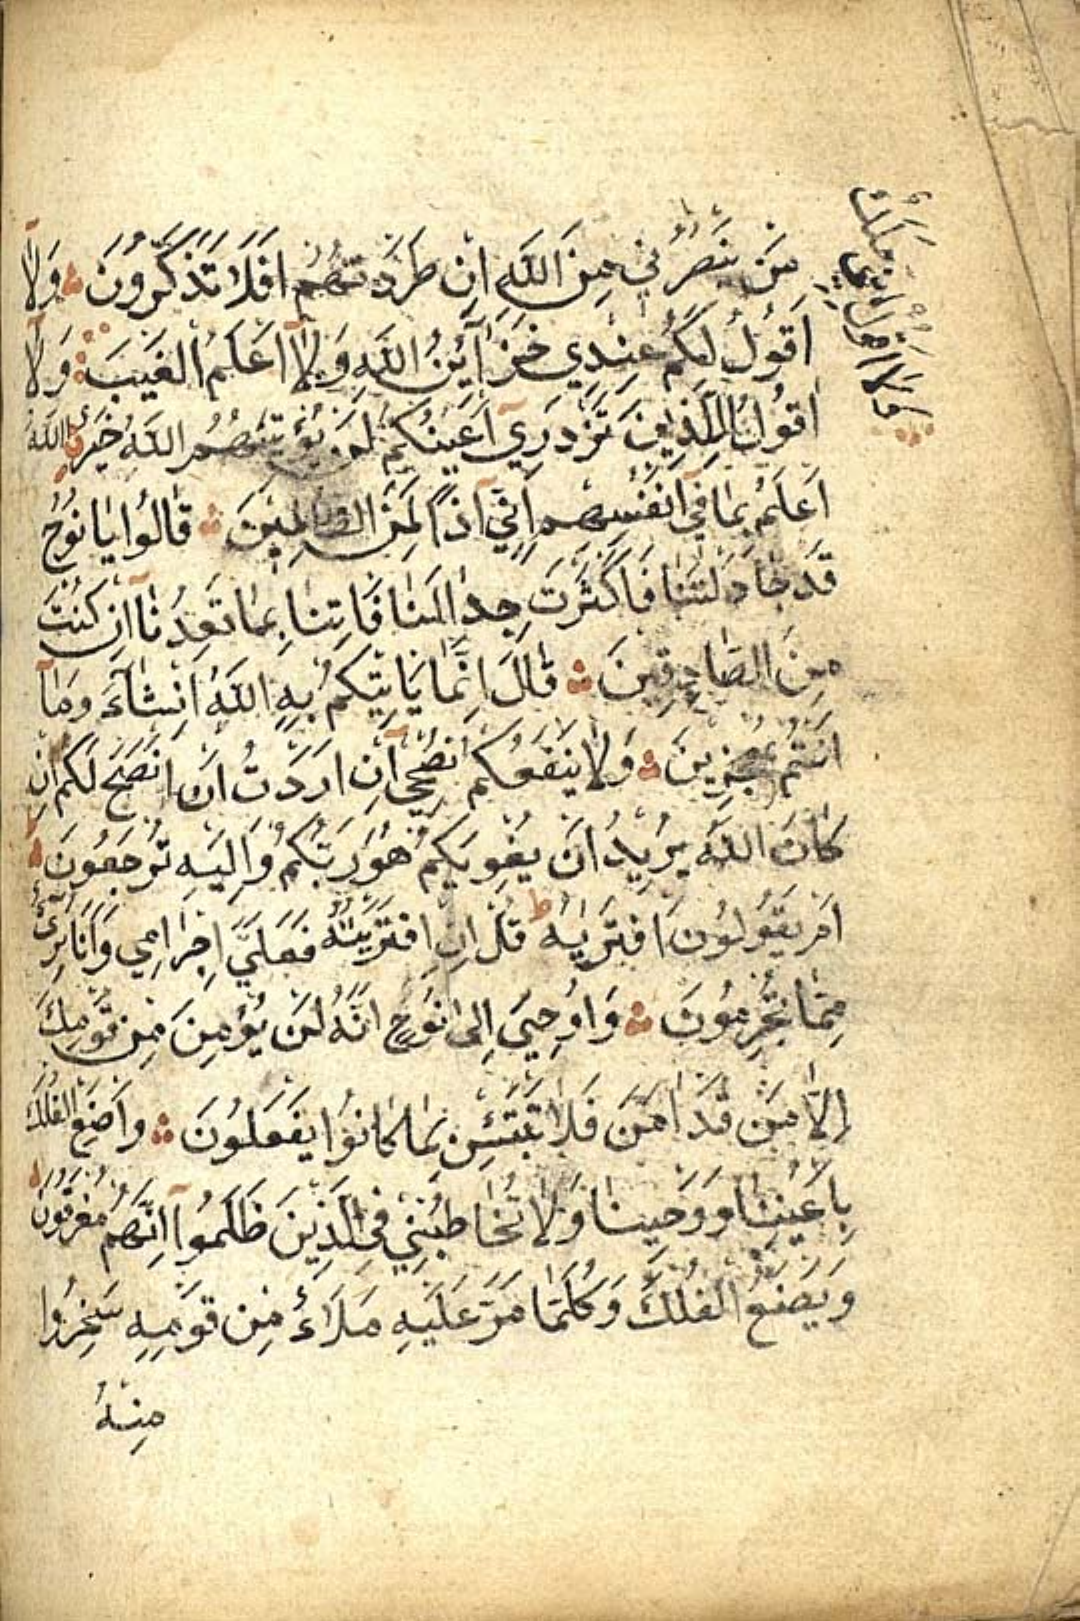 مَنْ يَنْصُرُنِي مِنَ اللّٰهِ اِنْ طَرَدْتُهُمْ اَفَلَا تَذَكَّرُونَ وَلَآ
اَقُولُ لَكُمْ عِنْدِي خَزَآئِنُ اللّٰهِ وَلَآ اَعْلَمُ الْغَيْبَ وَلَآ
اَقُولُ لِلَّذِينَ تَزْدَرِي اَعْيُنُكُمْ لَنْ يُؤْتِيَهُمُ اللّٰهُ خَيْرًا اَللّٰهُ
اَعْلَمُ بِمَا فِي اَنْفُسِهِمْ اِنِّي اِذًا لَمِنَ الظَّالِمِينَ قَالُوا يَا نُوحُ
قَدْ جَادَلْتَنَا فَاَكْثَرْتَ جِدَالَنَا فَاْتِنَا بِمَا تَعِدُنَآ اِنْ كُنْتَ
مِنَ الصَّادِقِينَ قَالَ اِنَّمَا يَاْتِيكُمْ بِهِ اللّٰهُ اِنْ شَآءَ وَمَآ
اَنْتُمْ بِمُعْجِزِينَ وَلَا يَنْفَعُكُمْ نُصْحِي اِنْ اَرَدْتُ اَنْ اَنْصَحَ لَكُمْ اِنْ
كَانَ اللّٰهُ يُرِيدُ اَنْ يُغْوِيَكُمْ هُوَ رَبُّكُمْ وَاِلَيْهِ تُرْجَعُونَ
اَمْ يَقُولُونَ افْتَرٰيهُ ط قُلْ اِنِ افْتَرَيْتُهُ فَعَلَيَّ اِجْرَامِي وَاَنَا بَرِيٓءٌ
مِمَّا تُجْرِمُونَ وَاُوحِيَ اِلٰى نُوحٍ اَنَّهُ لَنْ يُؤْمِنَ مِنْ قَوْمِكَ
اِلَّا مَنْ قَدْ اٰمَنَ فَلَا تَبْتَئِسْ بِمَا كَانُوا يَفْعَلُونَ وَاصْنَعِ الْفُلْكَ
بِاَعْيُنِنَا وَوَحْيِنَا وَلَا تُخَاطِبْنِي فِي الَّذِينَ ظَلَمُوا اِنَّهُمْ مُغْرَقُونَ
وَيَصْنَعُ الْفُلْكَ وَكُلَّمَا مَرَّ عَلَيْهِ مَلَاٌ مِنْ قَوْمِهِ سَخِرُوا
مِنْهُ